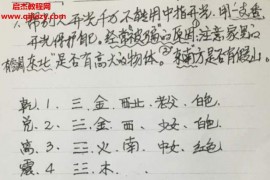 嘉杰教程网
1. 帮别人开光千万不能用中指开光,用一支香
开光保护自己,经常被骗的原因,注意家里的
东北"是否有高大的物体。②东南方是否有假山。
乾、1、三、金、西北、老父、白色
兑、2、三、金、西、少女、白色
离、3、三、火、南、中女、红色
震、4、三、木、